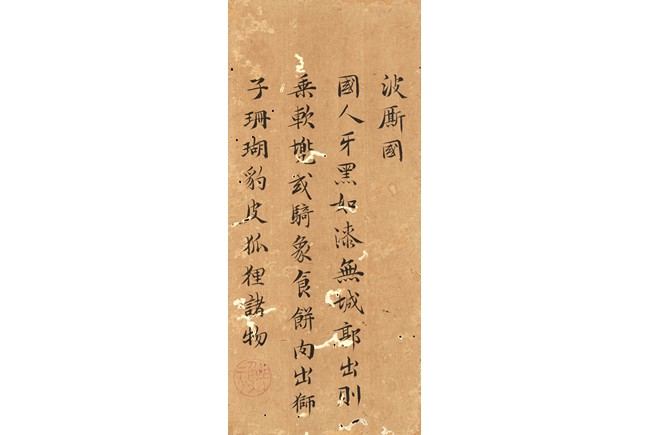 波厮國
國人牙黑如漆無城郭出則
乘軟兠或騎象食餅肉出獅
子珊瑚豹皮狐狸諸物